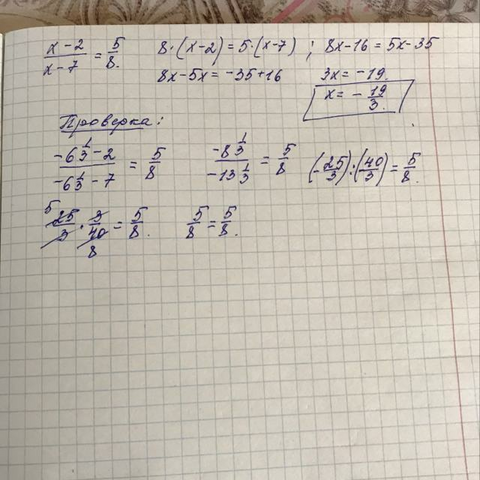 x-2/x-7 = 5/8. 8·(x-2)=5·(x-7) ; 8x-16=5x-35
8x-5x=-35+16 3x=-19.
x=-19/3.
Проверка:
-6 1/3 -2/-6 1/3 -7 = 5/8 -8 1/3/-13 1/3 = 5/8 (-25/3):(40/3)=5/8.
5
25/3 · 3/40 = 5/8. 5/8 = 5/8.
8